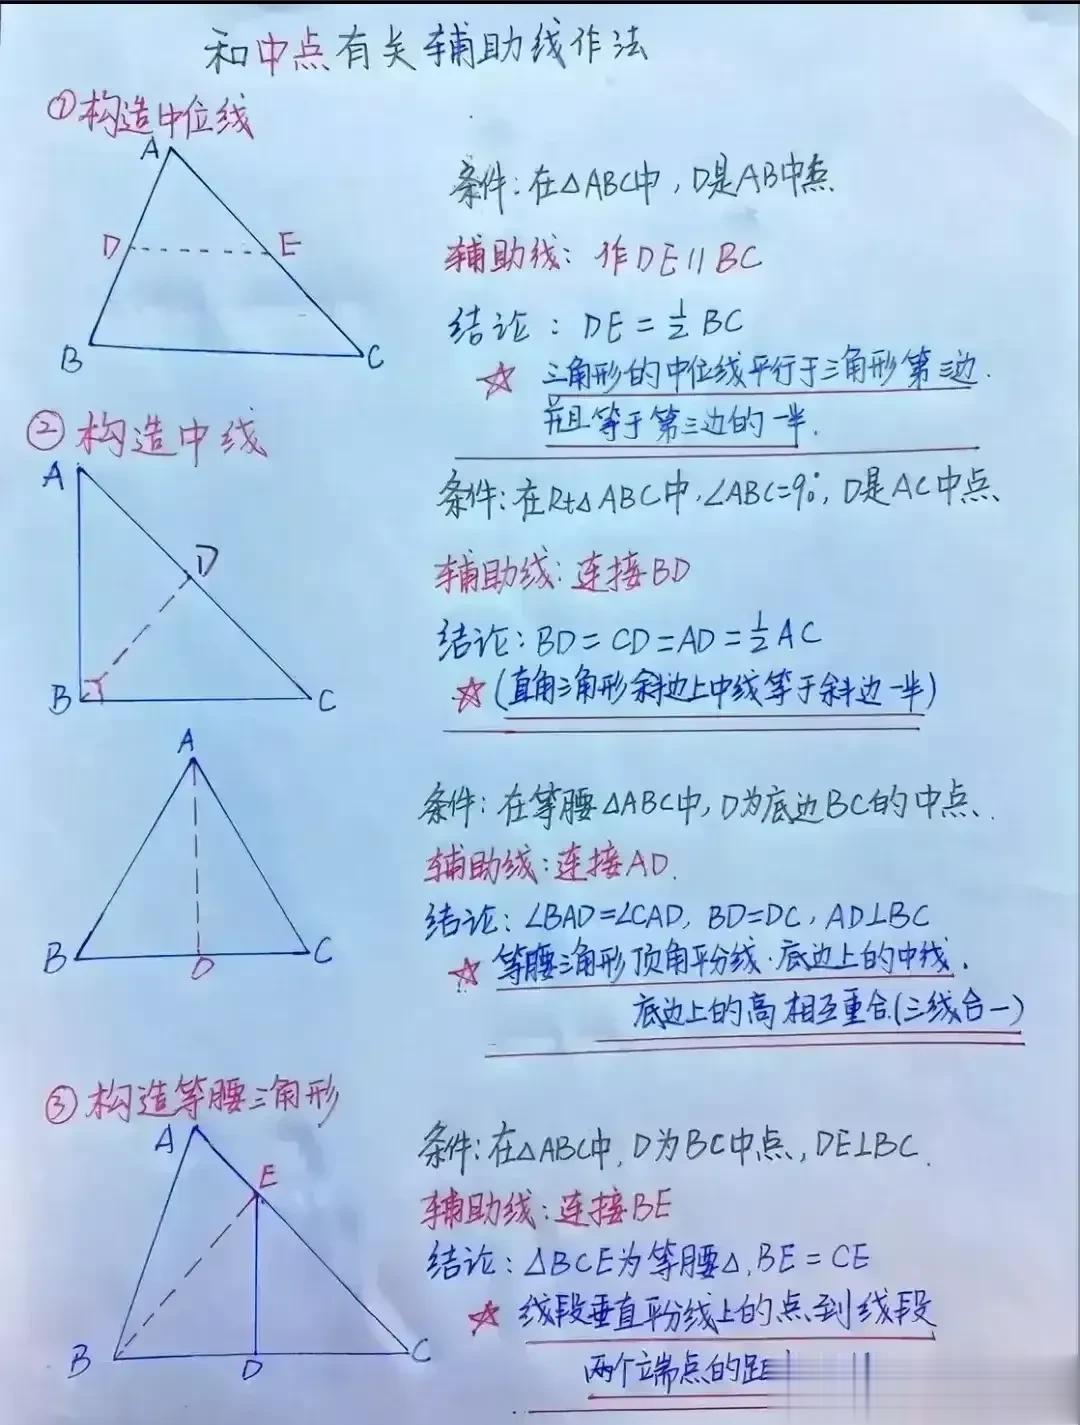 和中点有关辅助线作法
①构造中位线
A
D
E
B
C
条件:在△ABC中,D是AB中点.
辅助线:作DE∥BC
结论:DE=½BC
☆ 三角形的中位线平行于三角形第三边.
并且等于第三边的一半.
②构造中线
A
D
B
C
条件:在Rt△ABC中,∠ABC=90°,D是AC中点、
辅助线:连接BD
结论:BD=CD=AD=½AC
☆(直角三角形斜边上中线等于斜边一半)
A
B
D
C
条件:在等腰△ABC中,D为底边BC的中点、
辅助线:连接AD.
结论:∠BAD=∠CAD,BD=DC,AD⊥BC
☆ 等腰三角形顶角平分线.底边上的中线.
底边上的高相互重合(三线合一)
③构造等腰三角形
A
E
B
D
C
条件:在△ABC中,D为BC中点,DE⊥BC.
辅助线:连接BE
结论:△BCE为等腰△,BE=CE
☆ 线段垂直平分线上的点到线段
两个端点的距